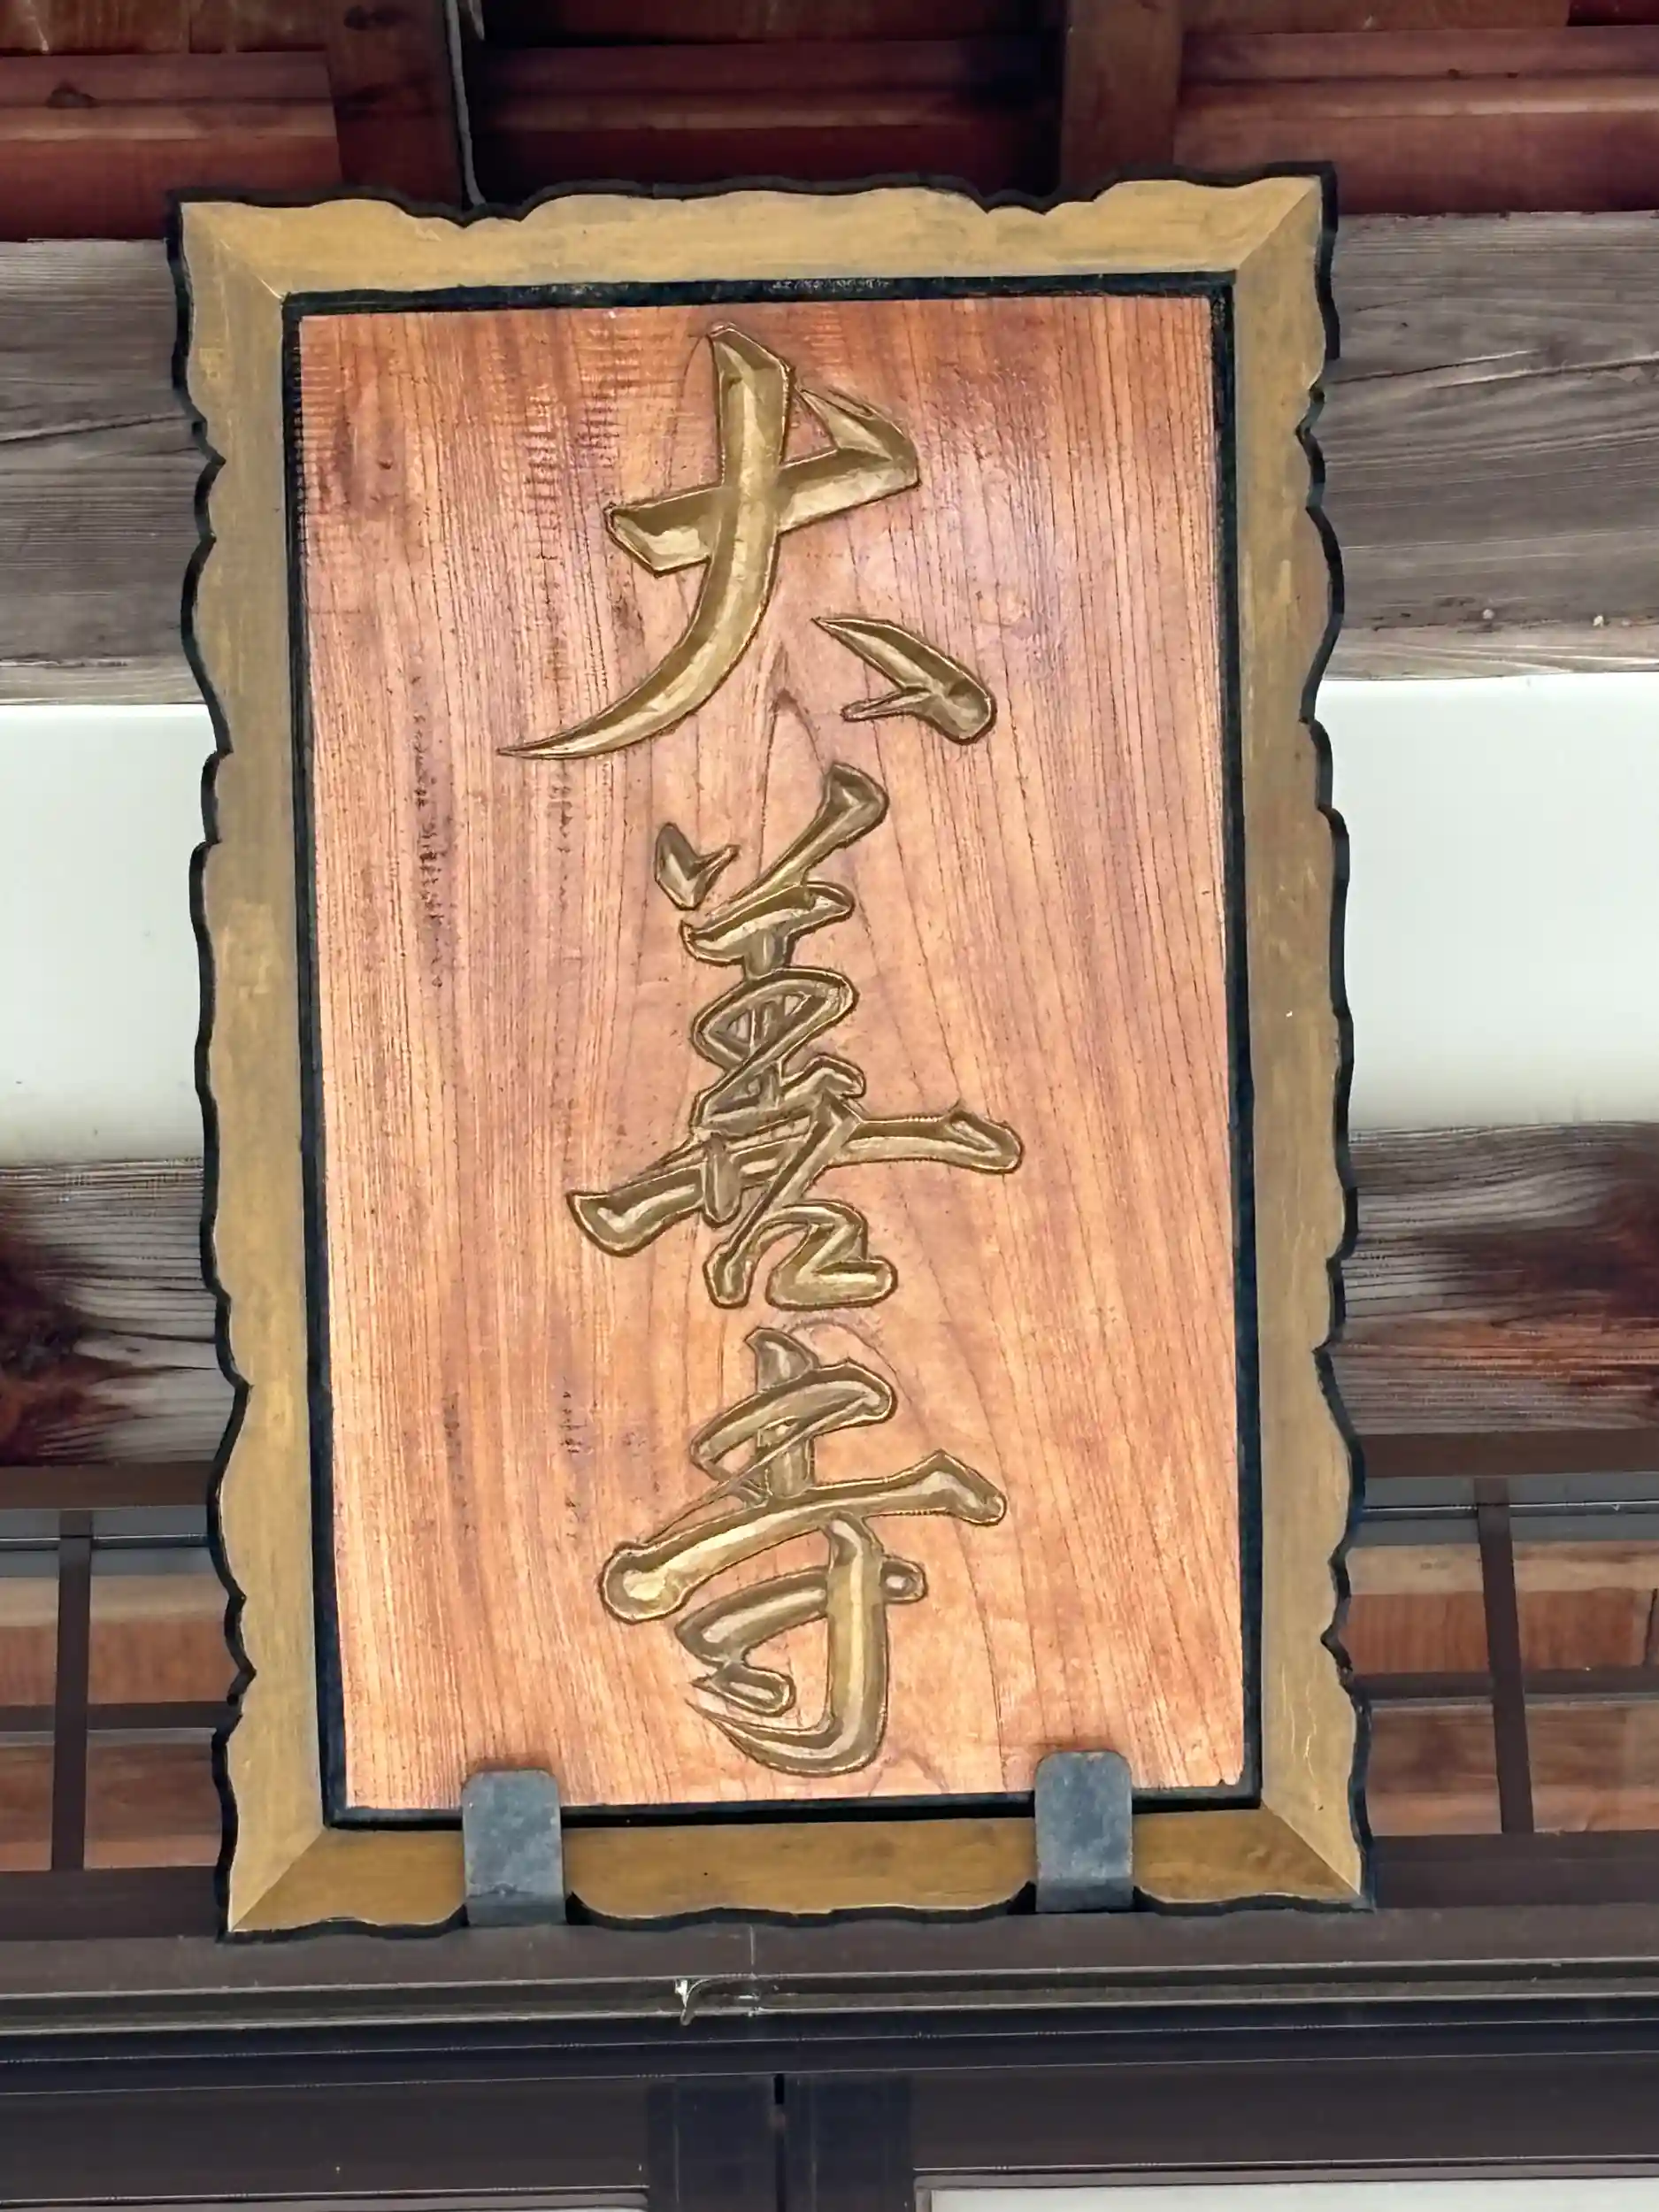 大善寺